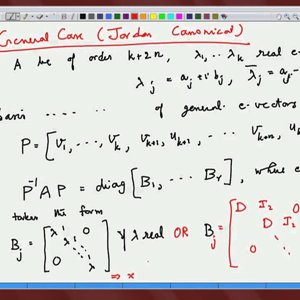 General Case (Jordan Canonical)
A be of order k+2n, λ₁ .. λₖ real e
λⱼ = aⱼ + i bⱼ, λ̄ⱼ = aⱼ -
basis ...... of general. e-vectors
P = [v₁, ..., vₖ, vₖ₊₁, uₖ₊₁ ... vₖ₊ₙ, u
P⁻¹ A P = diag [B₁, ... Bᵣ], where
takes the form
Bⱼ = [λ 1 0 ⋱ 0 λ] if λ real OR Bⱼ = [D I₂ 0 D I₂ 0
⇒ x